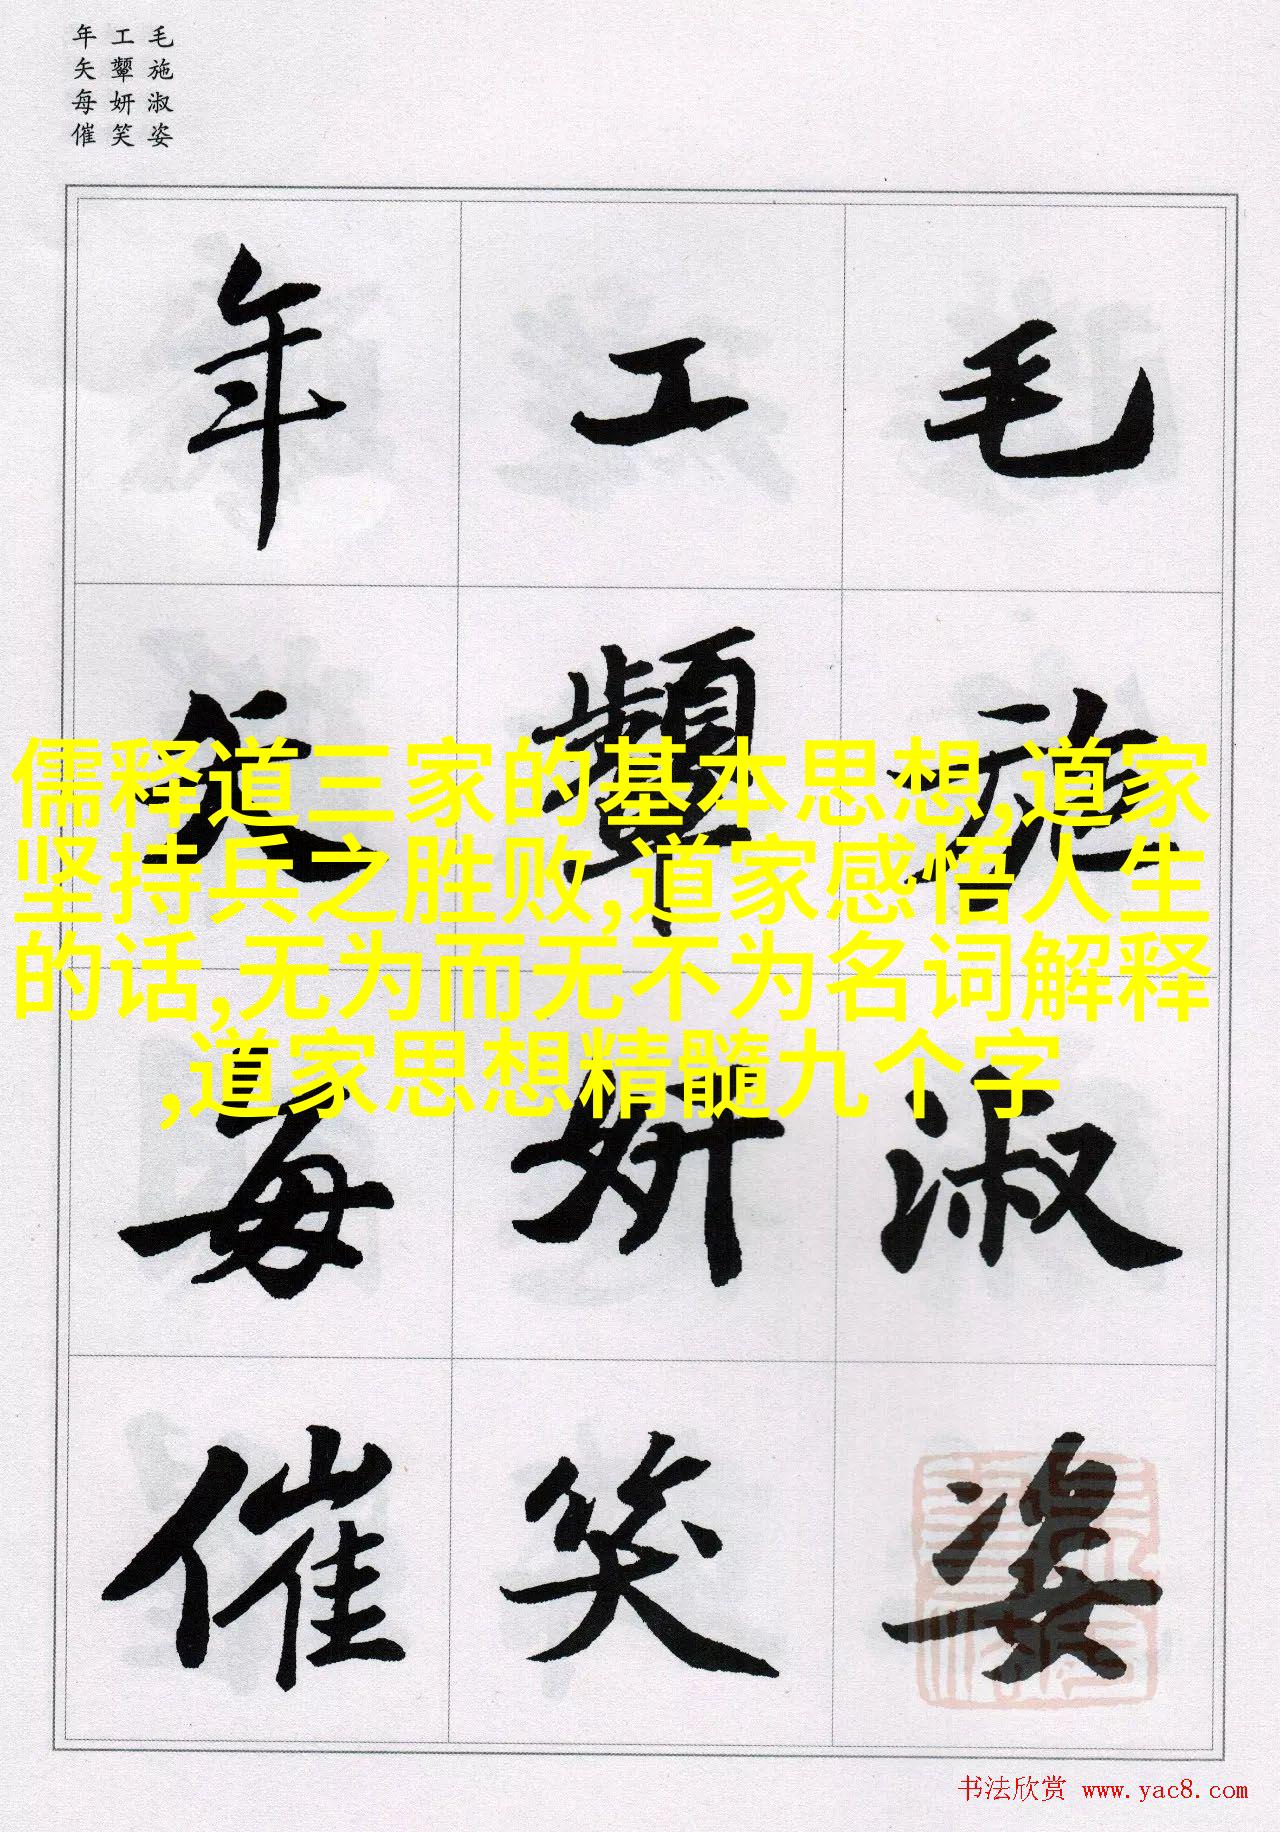 毛施淑姿
工颦妍笑
年矢每催
毛施淑姿
工颦妍笑
年矢每催
儒释道三家的基本思想,道家
坚持兵之胜败,道家感悟人生
的话,无为而无不为名词解释
,道家思想精髓九个字
书法欣赏 www.yac8.com